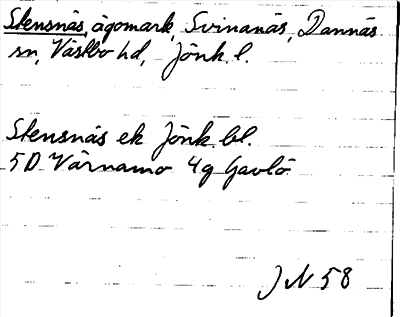 Stensnäs, ägomark, Svinanäs, Dannäs
sn, Västbo hd, Jönk. l.
Stensnäs ek Jönk bl.
5D Värnamo 4g Gavlö
JN 58